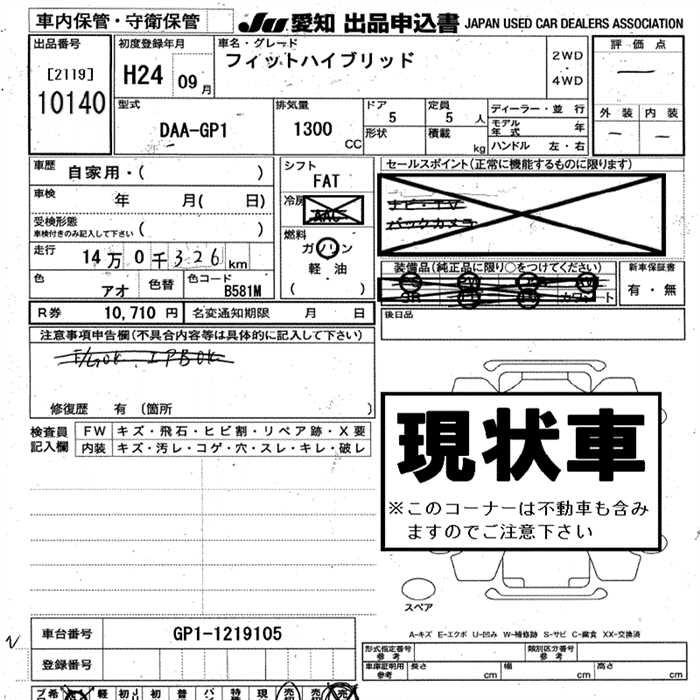 車内保管・守衛保管
JU 愛知 出品申込書 JAPAN USED CAR DEALERS ASSOCIATION
出品番号
[2119]
10140
初度登録年月
H24 09月
車名・グレード
フィットハイブリッド
2WD
・
4WD
評価点
—
外装 内装
— —
型式
DAA-GP1
排気量
1300 CC
ドア
5
定員
5 人
形状
積載 kg
ディーラー・並行
モデル年式 年
ハンドル 左・右
車歴 自家用・( )
車検 年 月( 日)
受検形態
車検付きのみ記入して下さい ( )
走行 14万0千326km
色 アオ
色替
色コード B581M
シフト
FAT
冷房
AAC
燃料
ガソリン
軽油
( )
セールスポイント(正常に機能するものに限ります)
ナビ・TV
バックカメラ
装備品(純正品に限り○をつけてください)
新車保証書
有・無
後日品
R券 10,710円 名変通知期限 月 日
注意事項申告欄(不具合内容等は具体的に記入して下さい)
修復歴 有(箇所 )
検査員記入欄
FW キズ・飛石・ヒビ割・リペア跡・X要
内装 キズ・汚レ・コゲ・穴・スレ・キレ・破レ
現状車
※このコーナーは不動車も含み
ますのでご注意下さい
スペア
A-キズ E-エクボ U-凹み W-補修跡 S-サビ C-腐食 XX-交換済
車台番号 GP1-1219105
登録番号
形式指定番号
参考
類別区分番号
参考
車庫証明用
参考
長さ cm 幅 cm 高さ cm